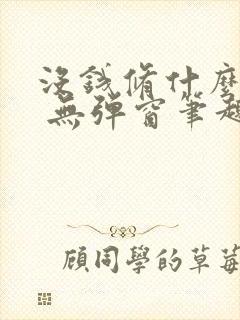 沒錢脩什麼
無彈窗筆趣
顧同學的草莓